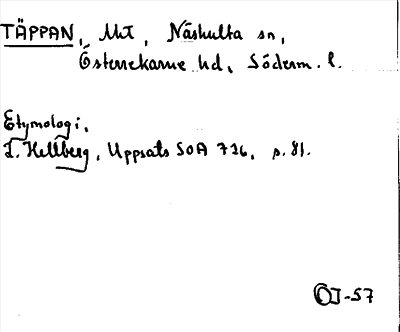 TÄPPAN, Mt, Näshulta sn,
Österrekarne hd, Söderm. l.
Etymologi,
L. Hellberg, Uppsats SOA 726, s. 81.
OJ-57